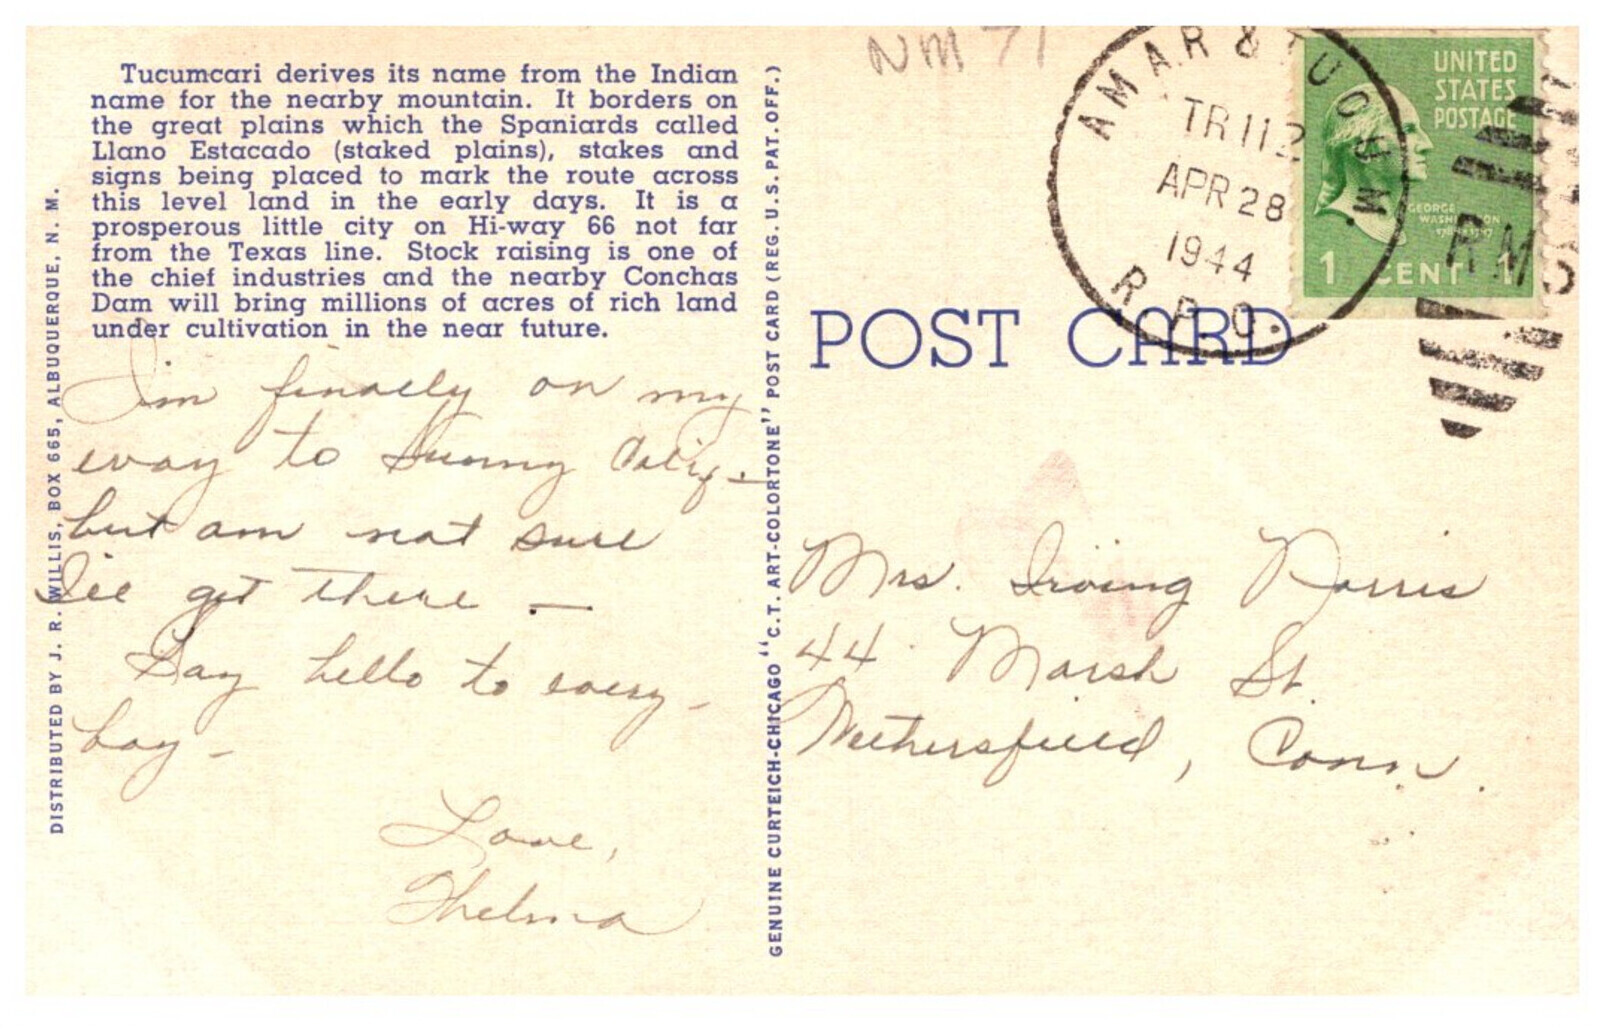 NM 71
Tucumcari derives its name from the Indian
name for the nearby mountain. It borders on
the great plains which the Spaniards called
Llano Estacado (staked plains), stakes and
signs being placed to mark the route across
this level land in the early days. It is a
prosperous little city on Hi-way 66 not far
from the Texas line. Stock raising is one of
the chief industries and the nearby Conchas
Dam will bring millions of acres of rich land
under cultivation in the near future.
I'm finally on my
way to Sunny Calif -
but am not sure
I'll get there —
Say hello to every -
boy -
Love,
Thelma
DISTRIBUTED BY J. R. WILLIS, BOX 665, ALBUQUERQUE, N. M.
GENUINE CURTEICH-CHICAGO "C.T. ART-COLORTONE" POST CARD (REG. U.S. PAT. OFF.)
AMAR & TUCUM.
TR 112
APR 28
1944
R.P.O.
UNITED
STATES
POSTAGE
GEORGE
WASHINGTON
1 CENT 1
RMS
POST CARD
Mrs. Irving Norris
44 Marsh St.
Wethersfield, Conn.